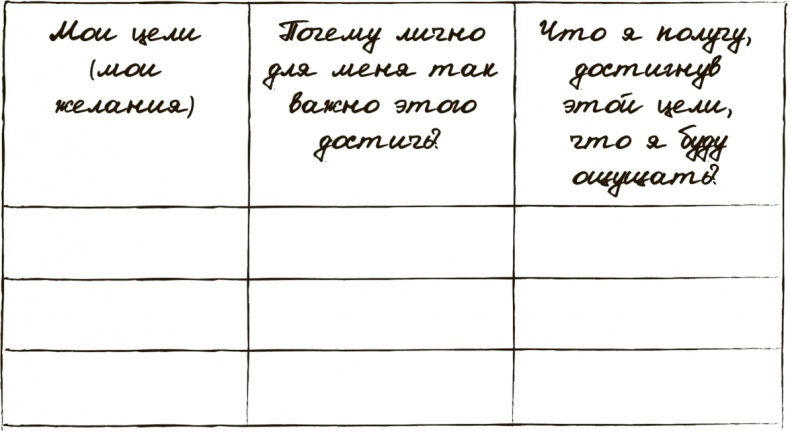 Мои цели
(мои
желания)
Почему лично
для меня так
важно этого
достичь?
Что я получу,
достигнув
этой цели,
что я буду
ощущать?